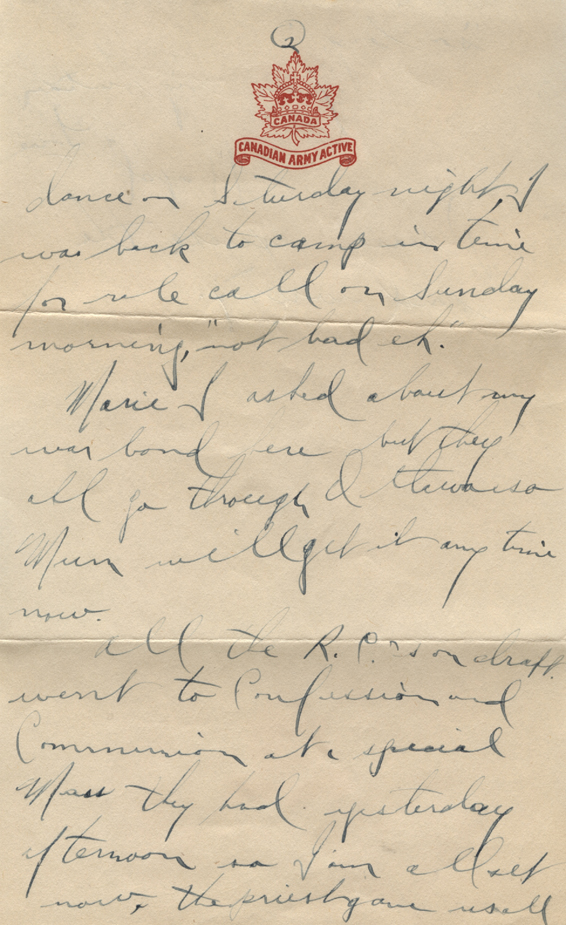 2
CANADA
CANADIAN ARMY ACTIVE
dance on Saturday night, I
was back to camp in time
for role call on Sunday
morning, "not bad eh."
Marie I asked about my
war bond here but they
all go through so
Mum will get it any time
now.
All the R.C.'s on draft
went to Confession and
Communion at a special
Mass they had yesterday
afternoon so I'm all set
now, the priest gave us all